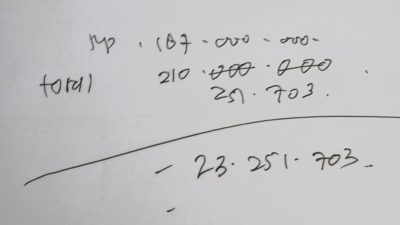 187.000.000.
total 210.000.000
251.703.
- 23.251.703.
-